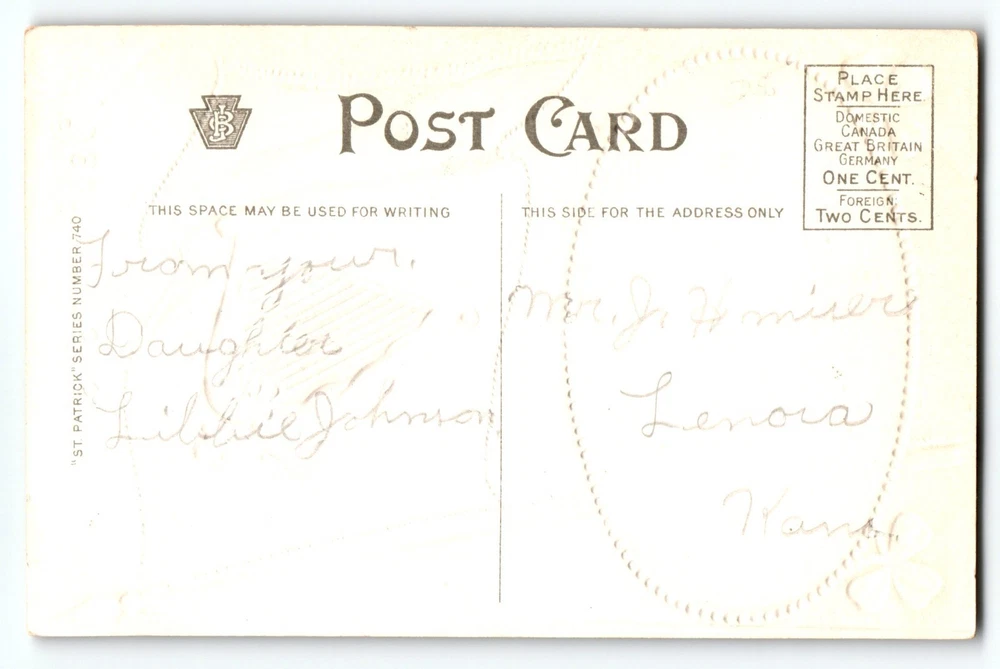 POST CARD
PLACE
STAMP HERE
DOMESTIC
CANADA
GREAT BRITAIN
GERMANY
ONE CENT.
FOREIGN,
TWO CENTS.
THIS SPACE MAY BE USED FOR WRITING
THIS SIDE FOR THE ADDRESS ONLY
"ST. PATRICK" SERIES NUMBER 740
From your.
Daughter
Libbie Johnson
Mr. J. H
Lenora
Kans.